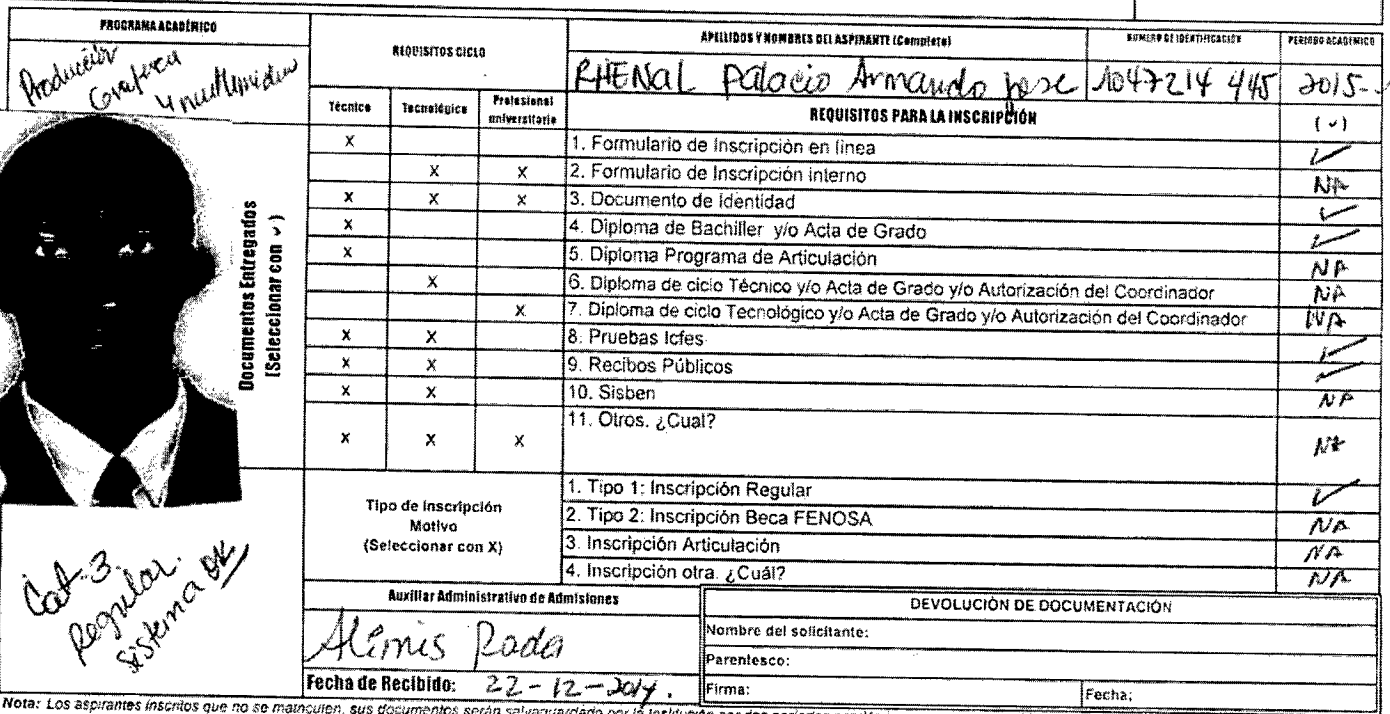 PROGRAMA ACADÉMICO
Producción
Grafica
y multimedia
REQUISITOS CICLO
APELLIDOS Y NOMBRES DEL ASPIRANTE (Completo)
NUMERO DE IDENTIFICACIÓN
PERIODO ACADEMICO
RHENAL Palacio Armando jose
1047214 445
2015-
Técnico
Tecnológico
Profesional universitario
REQUISITOS PARA LA INSCRIPCIÓN
(✓)
X 1. Formulario de Inscripción en línea ✓
X X 2. Formulario de Inscripción interno NA
X X X 3. Documento de Identidad ✓
X 4. Diploma de Bachiller y/o Acta de Grado ✓
X 5. Diploma Programa de Articulación NA
X 6. Diploma de ciclo Técnico y/o Acta de Grado y/o Autorización del Coordinador NA
X 7. Diploma de ciclo Tecnológico y/o Acta de Grado y/o Autorización del Coordinador NA
X X 8. Pruebas Icfes ✓
X X 9. Recibos Públicos ✓
X X 10. Sisben NA
X X X 11. Otros. ¿Cual? NA
Documentos Entregados
(Seleccionar con ✓)
Tipo de inscripción
Motivo
(Seleccionar con X)
1. Tipo 1: Inscripción Regular ✓
2. Tipo 2: Inscripción Beca FENOSA NA
3. Inscripción Articulación NA
4. Inscripción otra. ¿Cuál? NA
Cat. 3.
Regular.
Sistema OK
Auxiliar Administrativo de Admisiones
Alemis Rada
Fecha de Recibido: 22-12-2014.
DEVOLUCIÓN DE DOCUMENTACIÓN
Nombre del solicitante:
Parentesco:
Firma:
Fecha:
Nota: Los aspirantes inscritos que no se matriculen, sus documentos serán salvaguardado por la Institución por dos